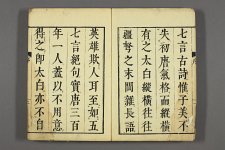 七言古詩惟子美不
失初唐氣格而縱横
有之太白縱横往往
彊弩之末間雜長語
英雄欺人耳至如五
七言絶句實唐三百
年一人蓋以不用意
得之即太白亦不自